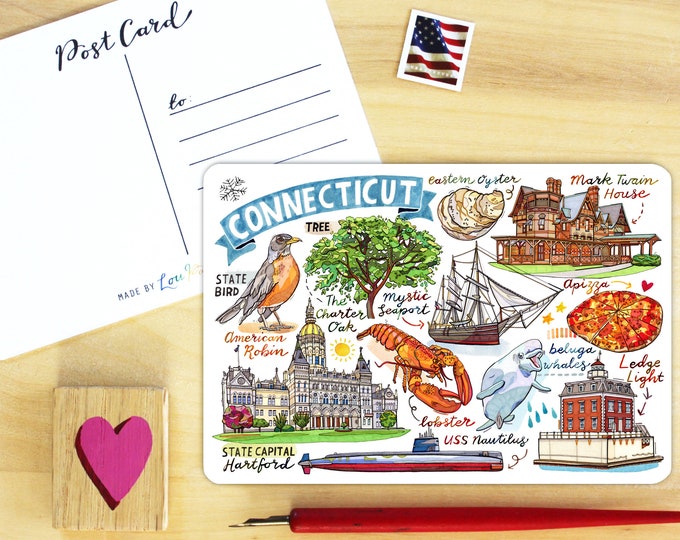 Post Card
to:
MADE BY Lou
CONNECTICUT
eastern Oyster
Mark Twain
House
TREE
STATE
BIRD
The
Charter
Oak
Mystic
Seaport
Apizza
American
Robin
beluga
whales
Ledge
Light
lobster
STATE CAPITAL
Hartford
USS Nautilus